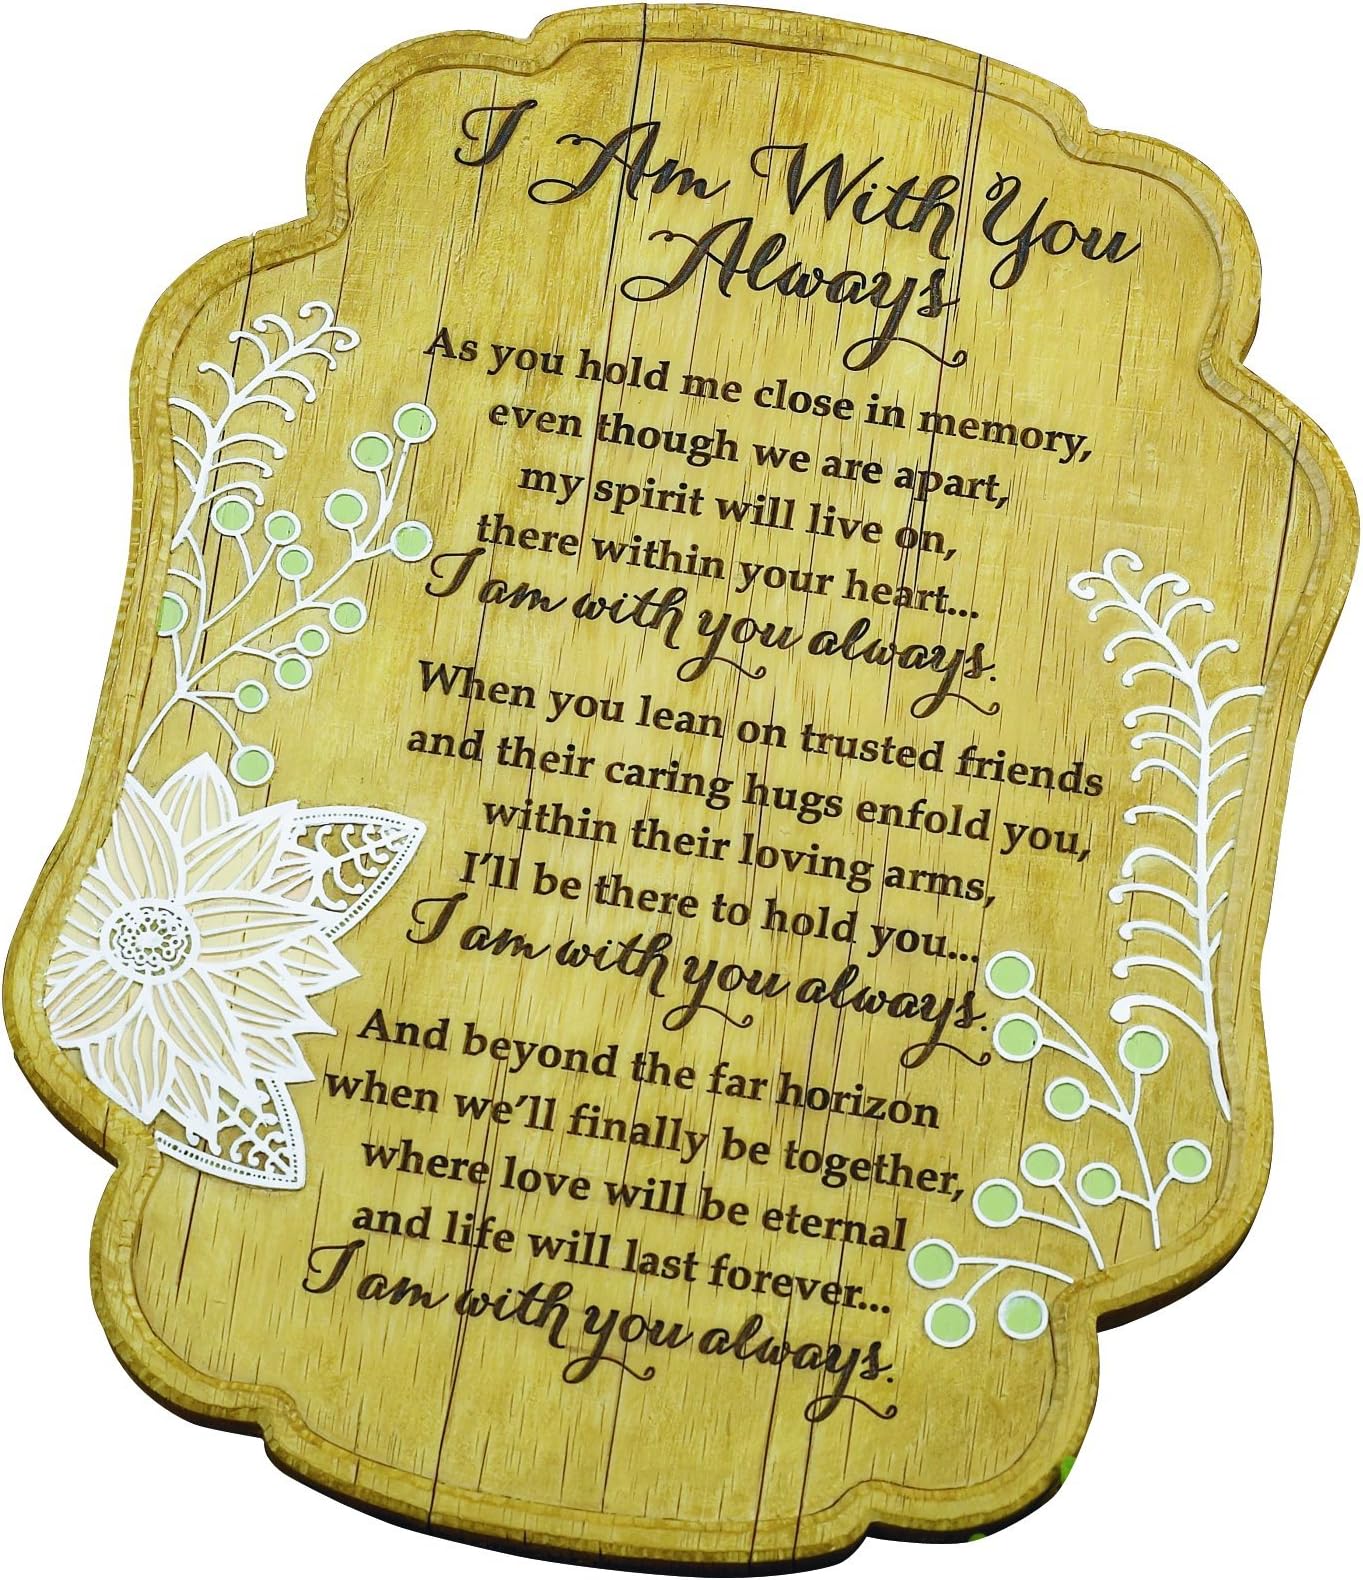 I Am With You
Always
As you hold me close in memory,
even though we are apart,
my spirit will live on,
there within your heart...
I am with you always.
When you lean on trusted friends
and their caring hugs enfold you,
within their loving arms,
I'll be there to hold you...
I am with you always.
And beyond the far horizon
when we'll finally be together,
where love will be eternal
and life will last forever...
I am with you always.